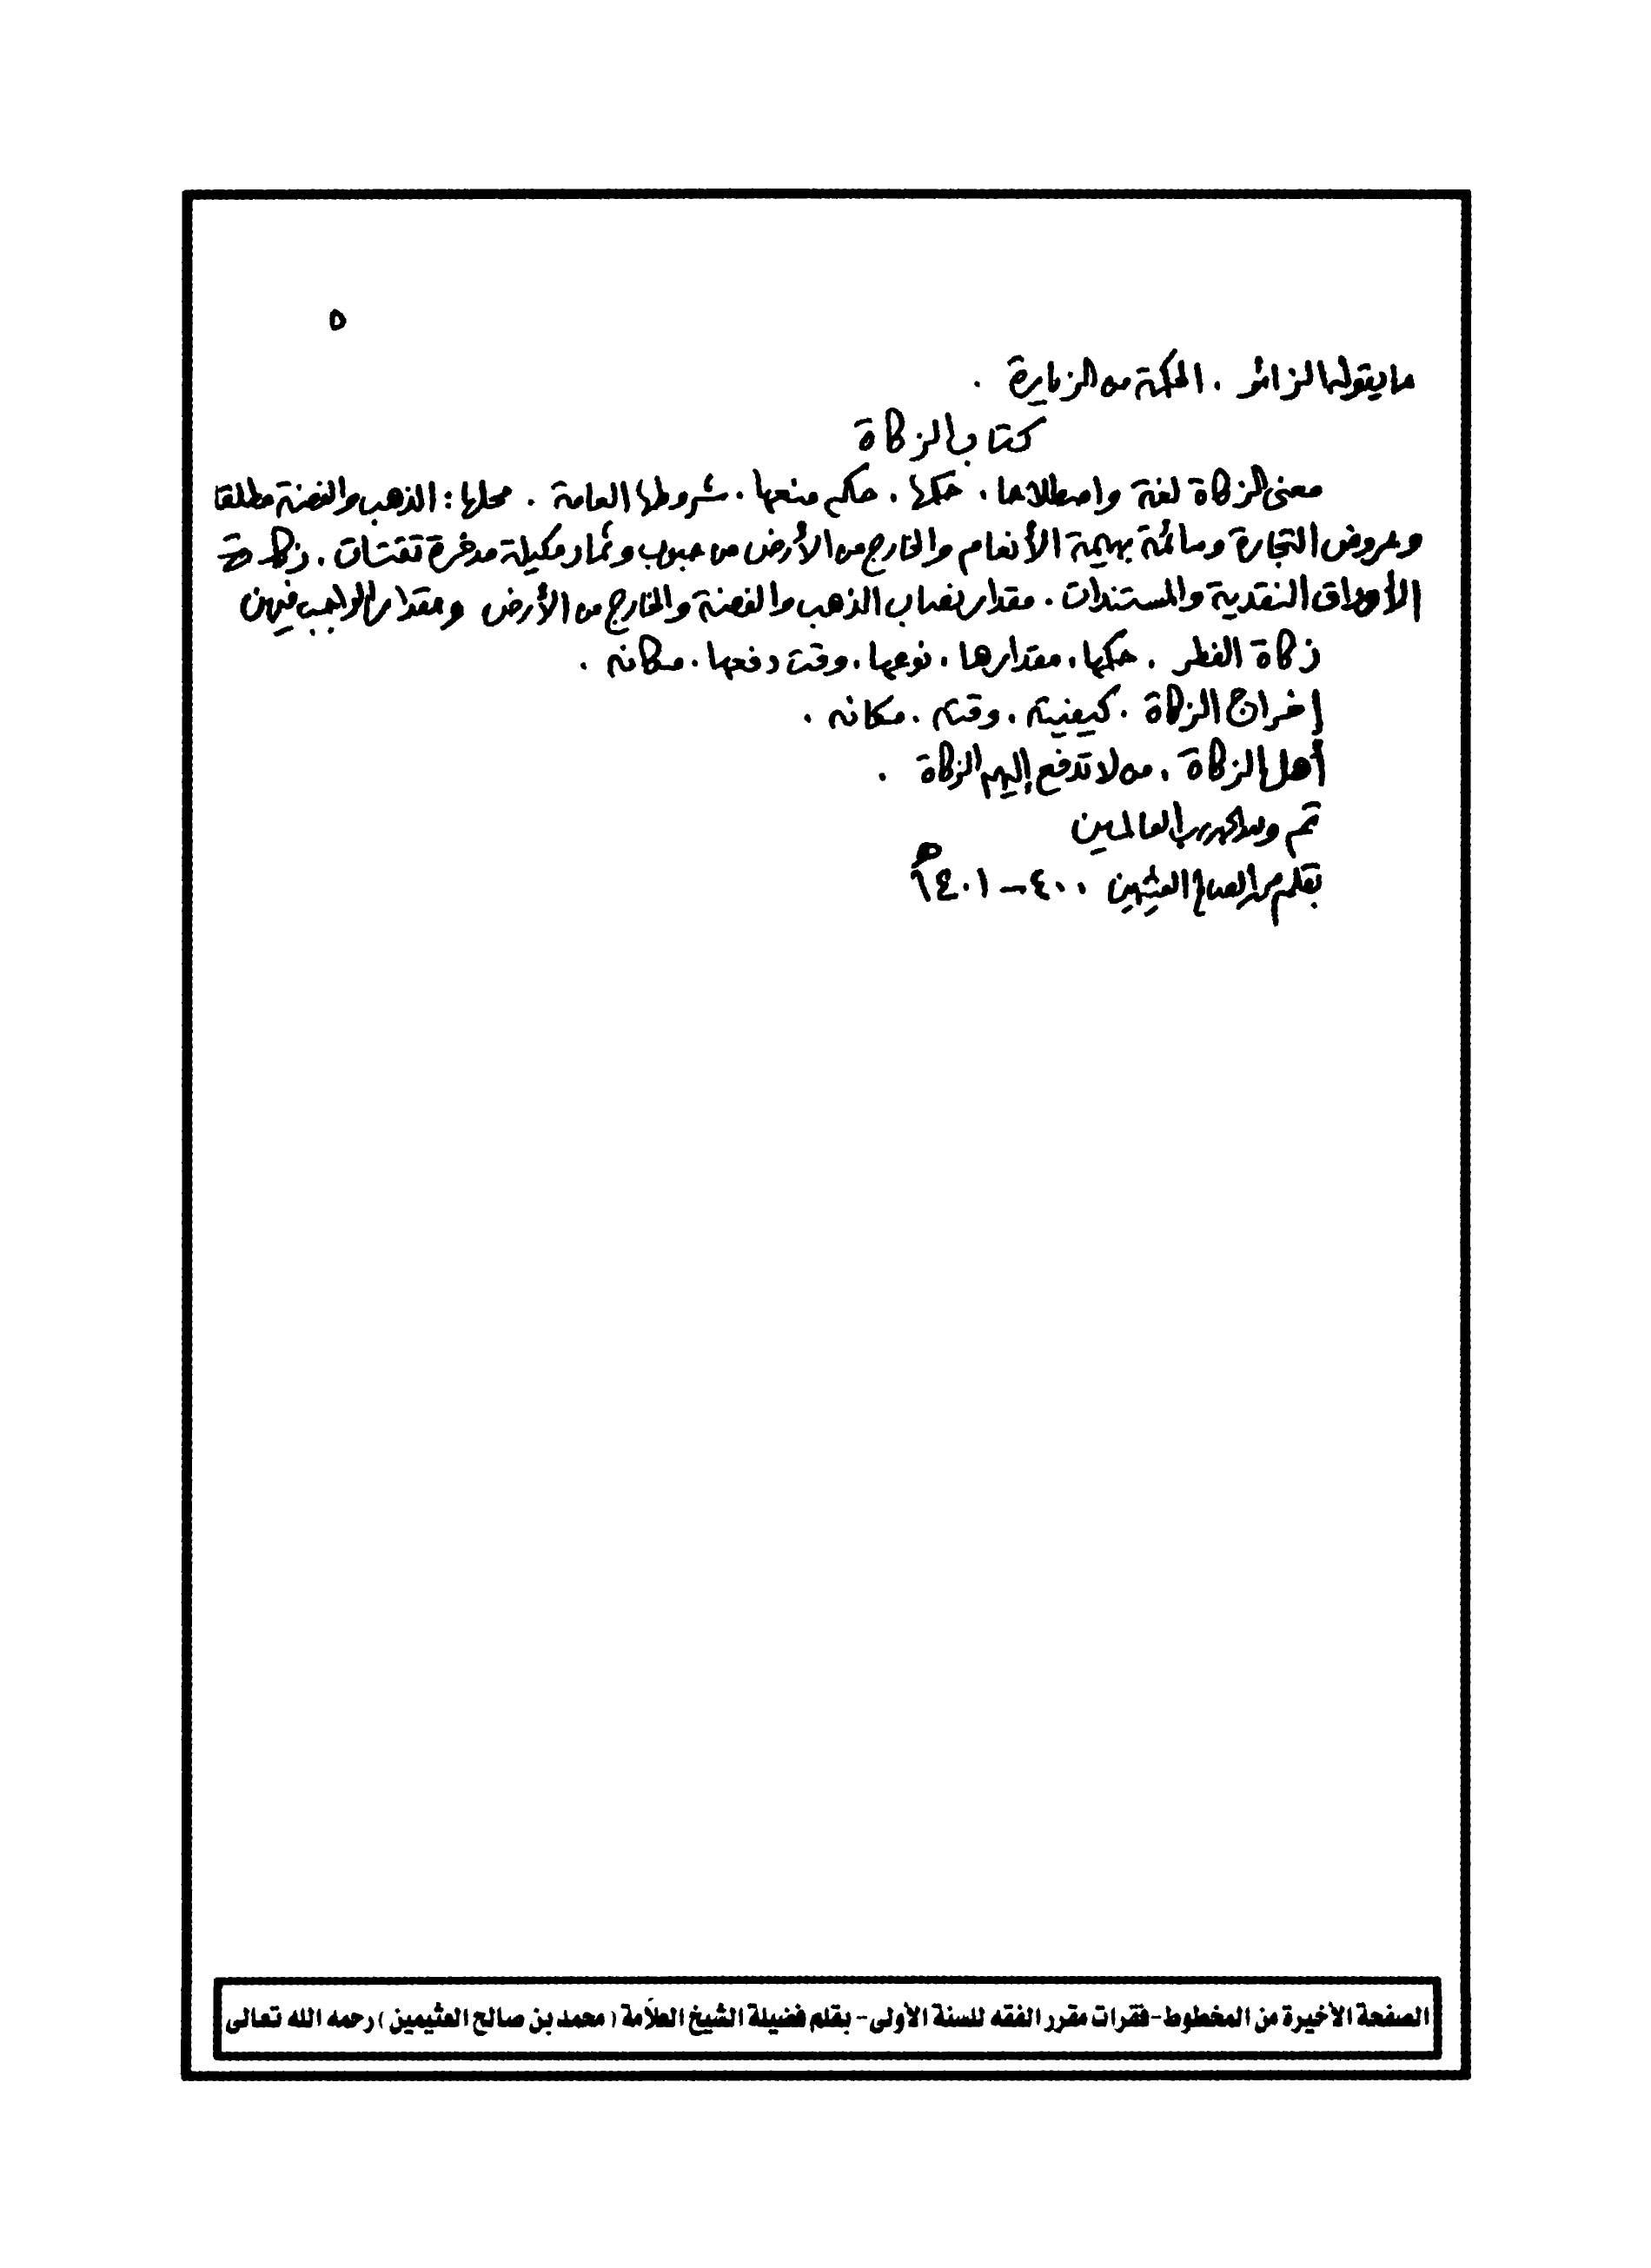 ٥
ما يقوله الزائر . الحكمة من الزيارة .
كتاب الزكاة
معنى الزكاة لغة واصطلاحا . حكمها . حكم منعها . شروطها العامة . محلها : الذهب والفضة مطلقا
وعروض التجارة وسائمة بهيمة الأنعام والخارج من الأرض من حبوب وثمار مكيلة مدخرة تقتات . زكاة
الأوراق النقدية والمستندات . مقدار نصاب الذهب والفضة والخارج من الأرض ومقدار الواجب فيهن
زكاة الفطر . حكمها . مقدارها . نوعها . وقت دفعها . مكانه .
إخراج الزكاة . كيفيته . وقته . مكانه .
أهل الزكاة . من لا تدفع إليهم الزكاة .
تم ولله الحمد رب العالمين
بقلم محمد الصالح العثيمين ٤٠٠ - ١٤٠١ هـ
الصفحة الأخيرة من المخطوط - فقرات مقرر الفقه للسنة الأولى - بقلم فضيلة الشيخ العلاَّمة ( محمد بن صالح العثيمين ) رحمه الله تعالى